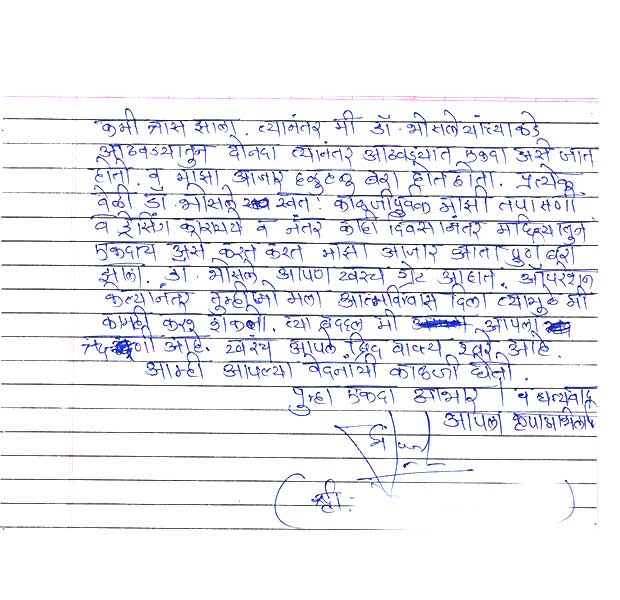 कमी त्रास झाला. त्यानंतर मी डॉ. भोसले यांच्याकडे
आठवड्यातुन दोनदा त्यानंतर आठवड्यात एकदा असे जात
होतो. व माझा आजार हळुहळु बरा होत होता. प्रत्येक
वेळी डॉ. भोसले स्वतः काळजीपुर्वक माझी तपासणी
व ड्रेसिंग करायचे व नंतर काही दिवसानंतर महिन्यातुन
एकदाच असे करत करत माझा आजार आता पुर्ण बरा
झाला. डॉ. भोसले आपण खरंच ग्रेट आहात. ऑपरेशन
केल्यानंतर तुम्ही जो मला आत्मविश्वास दिला त्यामुळे मी
काम करु शकलो. त्या बद्दल मी आपला
ऋणी आहे. खरंच आपले ब्रिद वाक्य खरे आहे.
आम्ही आपल्या वेदनाची काळजी घेतो.
पुन्हा एकदा आभार व धन्यवाद
आपला कृपाअभिलाषी
(श्री.